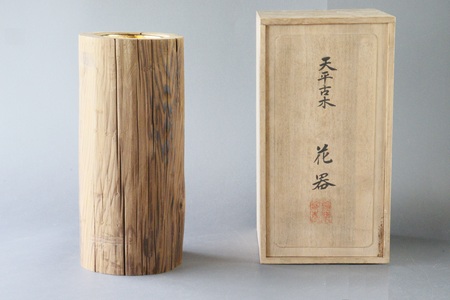 天平古木
花器